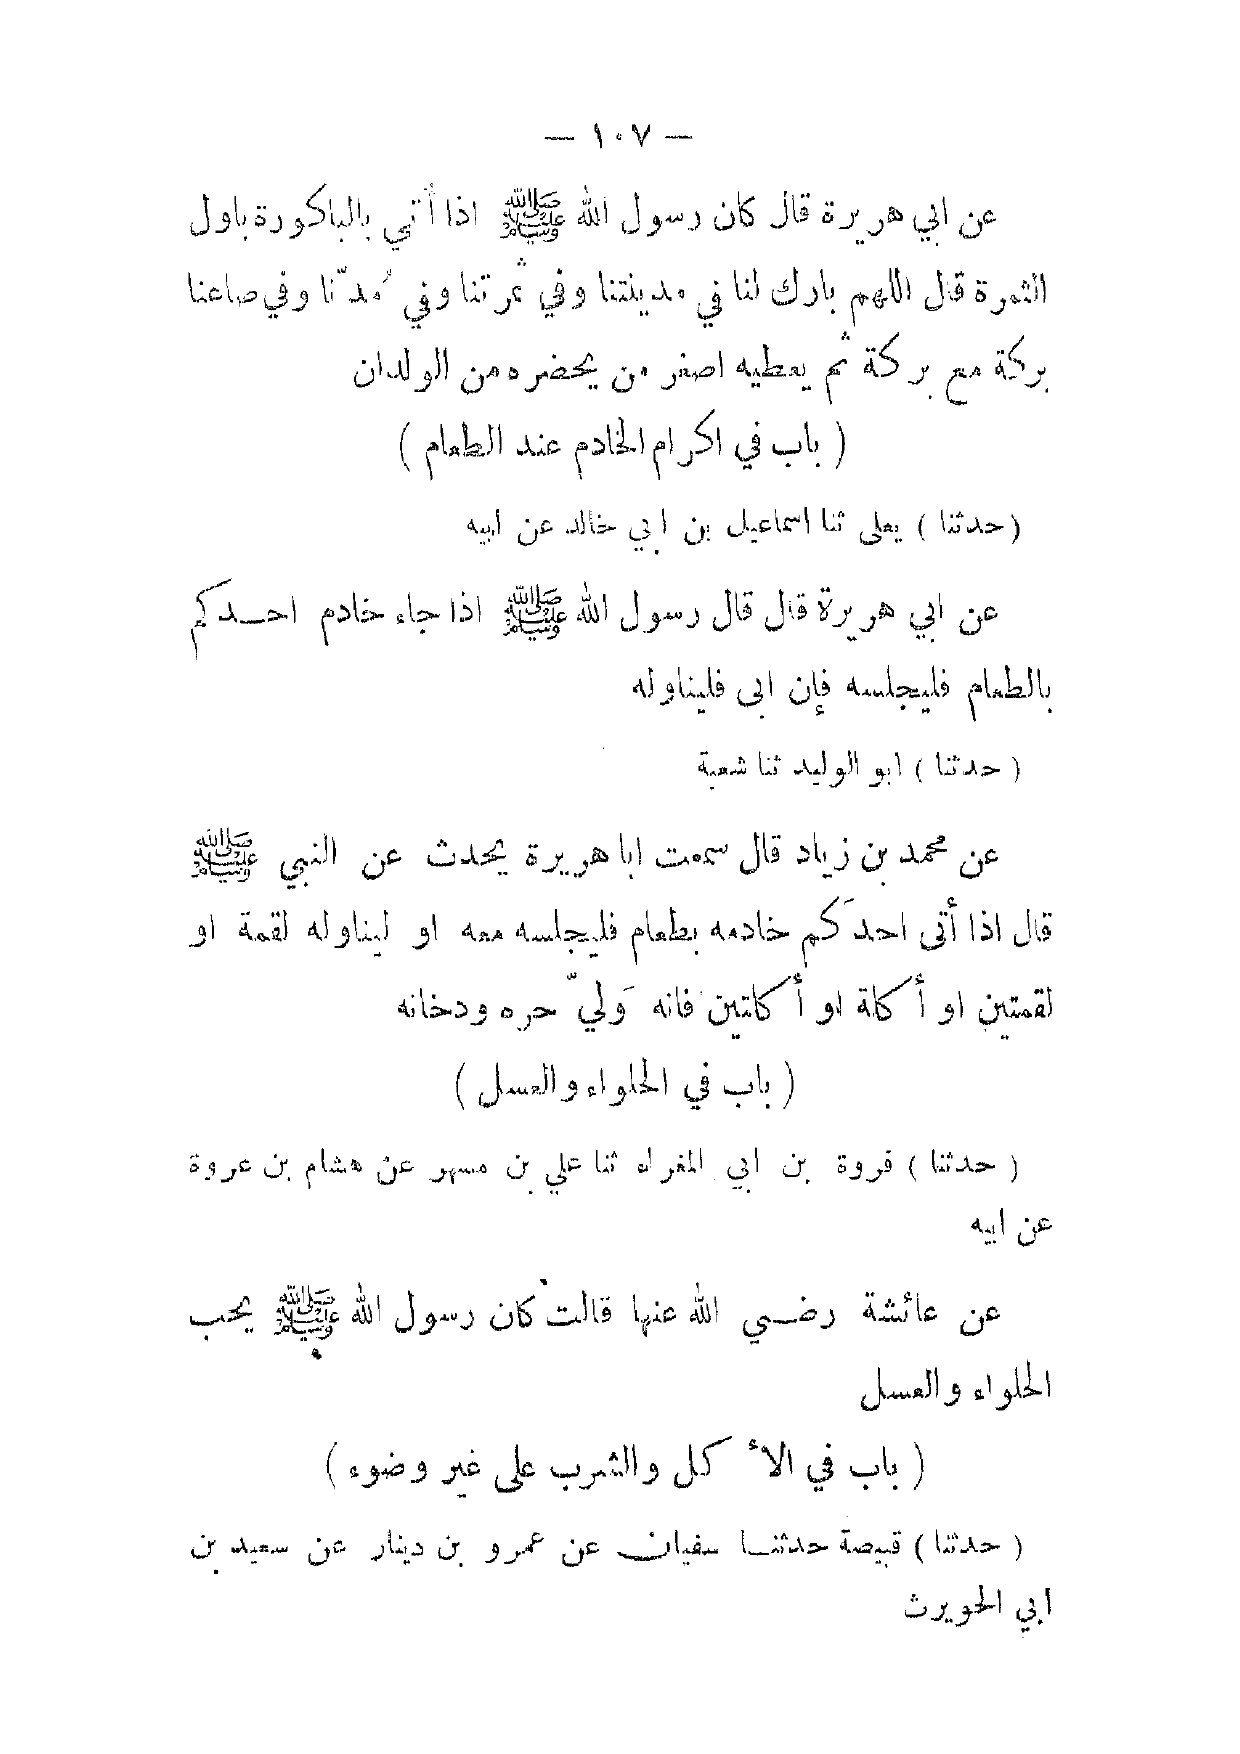 — ١٠٧ —
عن ابي هريرة قال كان رسول الله ﷺ اذا أُتي بالباكورة باول
الثمرة قال اللهم بارك لنا في مدينتنا وفي ثمرتنا وفي مُدّنا وفي صاعنا
بركة مع بركة ثم يعطيه اصغر من يحضره من الولدان
( باب في اكرام الخادم عند الطعام )
(حدثنا ) يعلى ثنا اسماعيل بن ابي خالد عن ابيه
عن ابي هريرة قال قال رسول الله ﷺ اذا جاء خادم احـدكم
بالطعام فليجلسه فإن ابى فليناوله
( حدثنا ) ابو الوليد ثنا شعبة
عن محمد بن زياد قال سمعت ابا هريرة يحدث عن النبي ﷺ
قال اذا أتى احدَكم خادمه بطعام فليجلسه معه او ليناوله لقمة او
لقمتين او أكلة او أكلتين فانه وَلي حره ودخانه
( باب في الحلواء والعسل )
( حدثنا ) فروة بن ابي المغراء ثنا علي بن مسهر عن هشام بن عروة
عن ابيه
عن عائشة رضـي الله عنها قالت كان رسول الله ﷺ يحب
الحلواء والعسل
( باب في الأكل والشرب على غير وضوء )
( حدثنا ) قبيصة حدثنـا سفيان عن عمرو بن دينار عن سعيد بن
ابي الحويرث